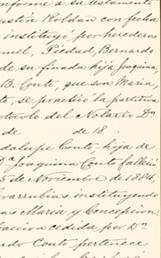 nforme a su testamento
ustin Roldan con fecha
instituyó por heredera
mil, Piedad, Bernardo
de su finada hija Joaquina
B. Conto, que son Maria,
te, se practicó la partición
otocolo del Notario Dn
de de 18
dalupe Conto, hija de
Joaquina Conto falleció
5 de Noviembre de 1884
varrubias instituyendo
as Maria y Concepcion
accion cedida por Da
ardo Conto pertenece